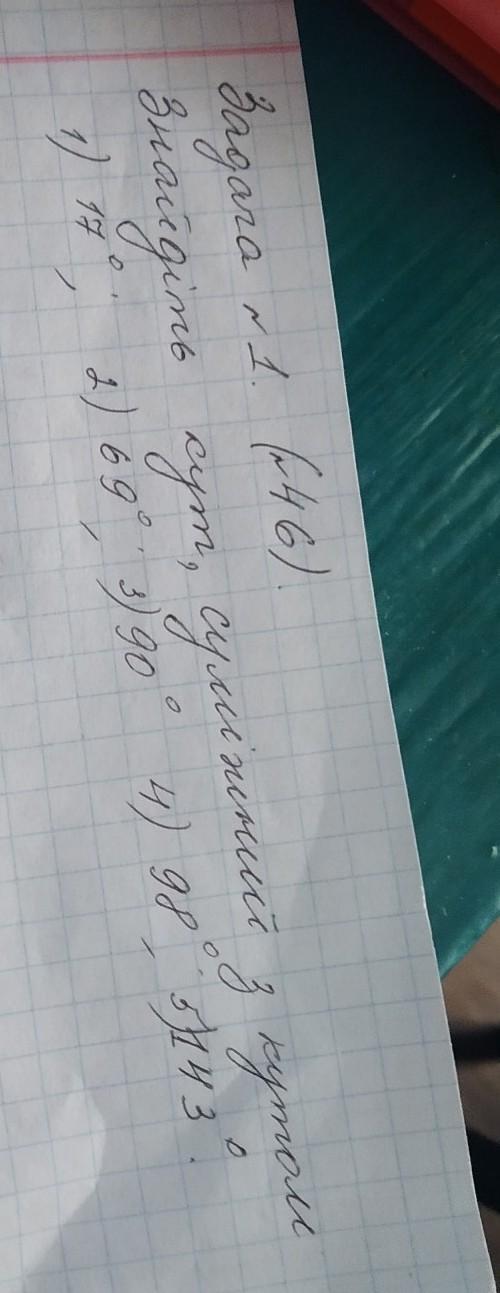 Задача №1. (№46).
Знайдіть кут, суміжний з кутом
1) 17°; 2) 69°; 3) 90° 4) 98°; 5) 143°.